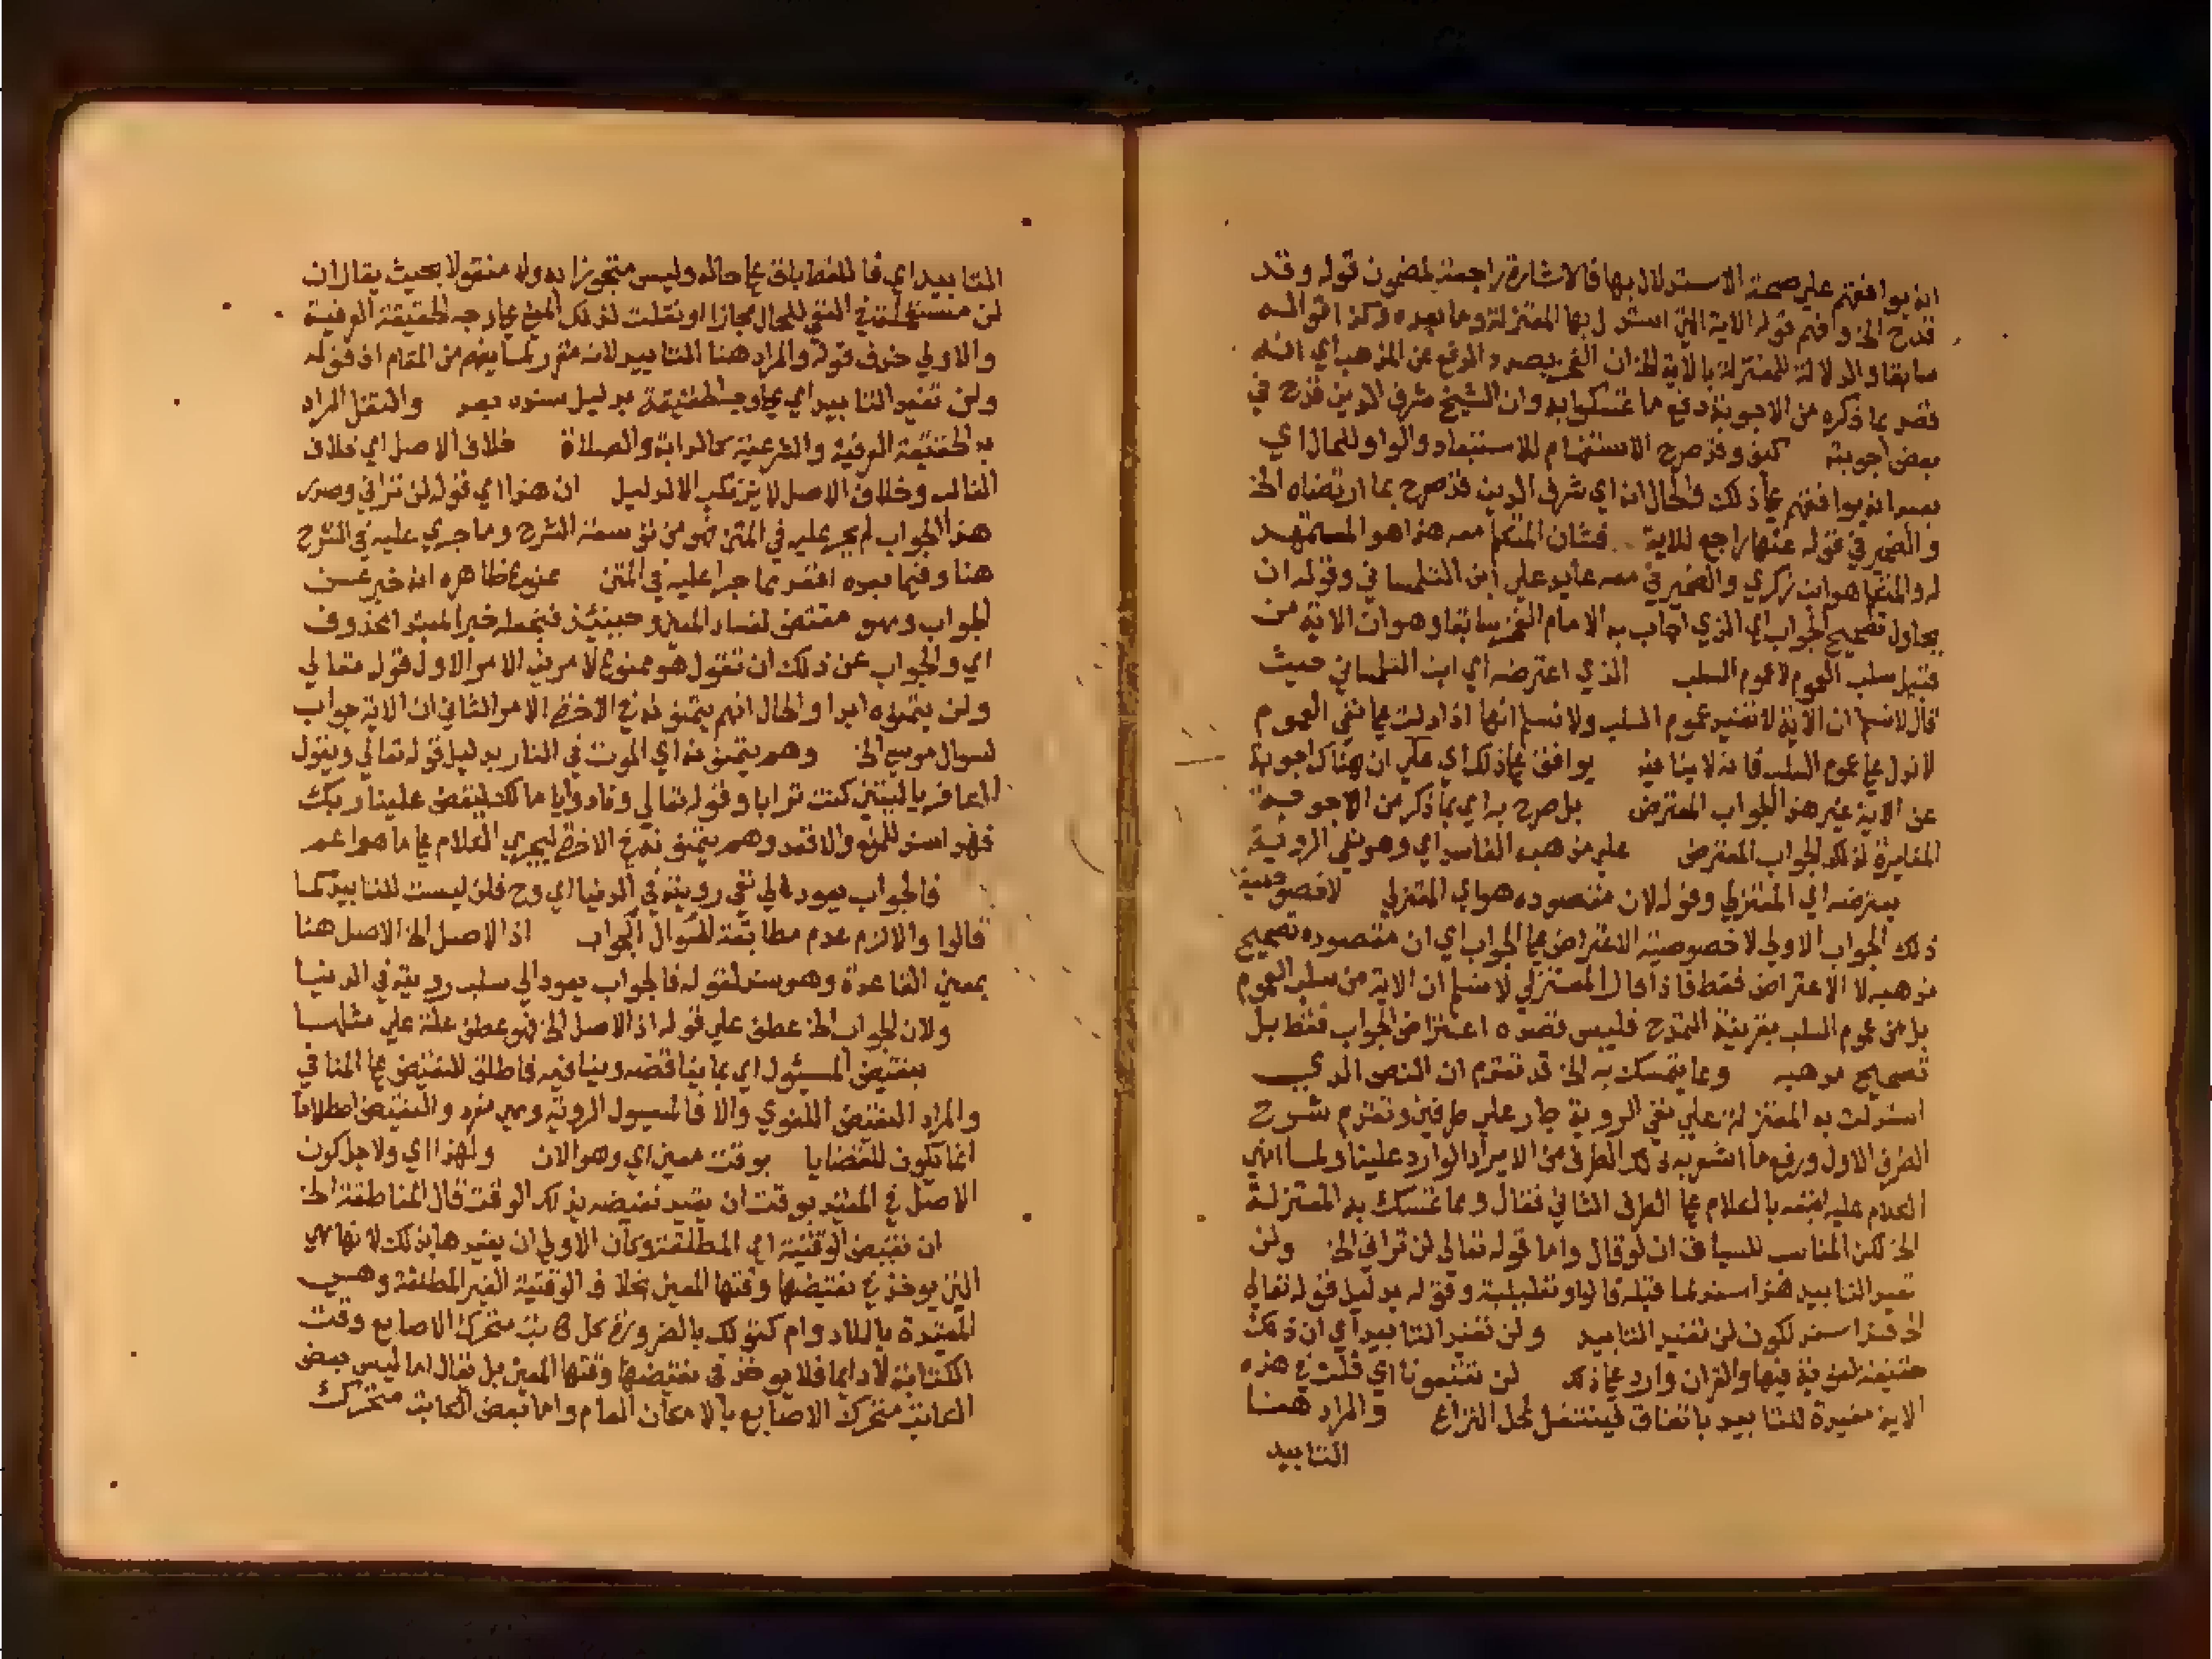 انه يوافقهم على صحة الاستدلال بها فالاشارة راجعة لمضمون قوله وقد
قدح الخ وافهم قوله الاية التي استدل بها المعتزلة وما بعده وكذا اقواله
سابقا والدلالة للمعتزلة بالاية لخ ان الفخر بصدد الدفع عن المذهب اي انه
قصد بما ذكره من الاجوبة دفع ما تمسكوا به وان الشيخ شرف الدين قدح في
بعض اجوبته كيف وقد صرح الاستفهام للاستبعاد والواو للحال اي
بعد انه يوافقهم على ذلك والحال انه اي شرف الدين قد صرح بما ارتضاه الخ
والضمير في قوله عنها راجع للاية فشان المتكلم معه هذا هو المستشهد
له والمتكلم هو ابن زكري والضمير في معه عايد علي ابن التلمساني وقوله ان
يحاول تصحيح الجواب اي الذي اجاب به الامام الفخر سابقا وهو ان الاية من
قبيل سلب العموم لا عموم السلب الذي اعترضه اي ابن التلمساني حيث
قال لا نسلم ان الاية لا تفيد عموم السلب ولا نسلم انها اذا دلت على نفي العموم
لا تدل على عموم السلب فانه لا ينافيه يوافق على ذلك اي على ان هناك اجوبة
عن الاية غير هذا الجواب المعترض بل صرح به اي بما ذكر من الاجوبة
المغايرة لذلك الجواب المعترض على مذهبه الفاسد اي وهو نفي الروية
يعترضه اي المعتزلي وقوله لان مقصوده هو اي المعتزلي لا خصوصية
ذلك الجواب الاولي لا خصوصية الاعتراض على الجواب اي ان مقصوده تصحيح
مذهبه لا الاعتراض فقط فاذا قال المعتزلي لا نسلم ان الاية من سلب العموم
بل من عموم السلب بقرينة التمدح فليس قصده اعتراض الجواب فقط بل
تصحيح مذهبه ومما يتمسك به الخ قد تقدم ان النص الذي
استدلت به المعتزلة علي نفي الروية جار علي طرفين وتقدم شرح
الطرف الاول ورفع ما اشعر به ذلك الطرف من الايراد الوارد علينا ولما انهي
الكلام عليه اتبعه بالكلام على الطرف الثاني فقال ومما تمسك به المعتزلة
الخ لكن المناسب للسياق ان لو قال واما قوله تعالي لن تراني الخ ولن
تفيد التابيد هذا سند لما قبله فالواو تعليلية وقوله بدليل قوله تعالي
الخ هذا سند لكون لن تفيد التابيد ولن تفيد التابيد اي ان ذلك
حقيقة لغوية فيها والقران وارد على ذلك لن تتبعونا اي فلن في هذه
الاية مفيدة للتابيد باتفاق فينتقل لمحل النزاع والمراد هنا
التابيد
التابيد اي فاللفظ باق على حاله وليس متجوزا به ولا منقولا بحيث يقال ان
لن مستعملة في النفي للحال مجازا او نقلت لذلك المعنى على وجه الحقيقة العرفية
والاولي حذف قوله والمراد هنا التابيد لانه مقرر لما يفهم من المقام اذ قوله
ولن تفيد التابيد اي على وجه الحقيقة بدليل سنده بعد والنقل المراد
به الحقيقة العرفية والشرعية كالدابة والصلاة خلاف الاصل اي خلاف
الغالب وخلاف الاصل لا يرتكب الا لدليل ان هذا اي قوله لن تراني وصدر
هذا الجواب لم يجر عليه في المتن فهو من سعة الشرح وما جري عليه في الشرح
هنا وفيما بعده اقعد مما جرا عليه في المتن ممنوع ظاهره انه خبر عن
الجواب وهو مقتض لفساد المعنى وحينئذ فنجعله خبرا لمبتدا محذوف
اي والجواب عن ذلك ان نقول هو ممنوع لامرين الامر الاول قوله تعالي
ولن يتمنوه ابدا والحال انهم يتمنونه في الاخرة الامر الثاني ان الاية جواب
لسوال موسي الخ وهم يتمنونه اي الموت في النار بدليل قوله تعالي ويقول
الكافر يا ليتني كنت ترابا وقوله تعالي ونادوا يا مالك ليقض علينا ربك
فهذا سند للمنع والا فقد وهم يتمنونه في الاخرة ليجري الكلام على ما هو اعم
فالجواب يعود الي نفي رويته في الدنيا اي وح فلن ليست للتابيد كما
قالوا والا لزم عدم مطابقة السوال الجواب اذ الاصل الخ الاصل هنا
بمعنى القاعدة وهو سند لقوله فالجواب يعود الي سلب رويته في الدنيا
ولان الجواب الخ عطف علي قوله اذ الاصل الخ فهو عطف علة علي مثلها
بنقيض المسئول اي بما يناقضه وينافيه فاطلق النقيض على المنافي
والمراد النقيض اللغوي والا فالمسيول الروية وهي مفرد والنقيض اصطلاحا
انما تكون للقضايا بوقت معين اي وهو الان ولهذا اي ولاجل كون
الاصل في المقيد بوقت ان يقيد نقيضه بذلك الوقت قال المناطقة الخ
ان نقيض الوقتية اي المطلقة وكان الاولي ان يقيدها بذلك لانها هي
التي يوخذ في نقيضها وقتها المعين بخلاف الوقتية الغير المطلقة وهي
المقيدة باللادوام كقولك بالضرورة كل كاتب متحرك الاصابع وقت
الكتابة لا دايما فلا يوخذ في نقيضها وقتها المعين بل يقال اما ليس بعض
الكاتب متحرك الاصابع بالامكان العام واما بعض الكاتب متحرك